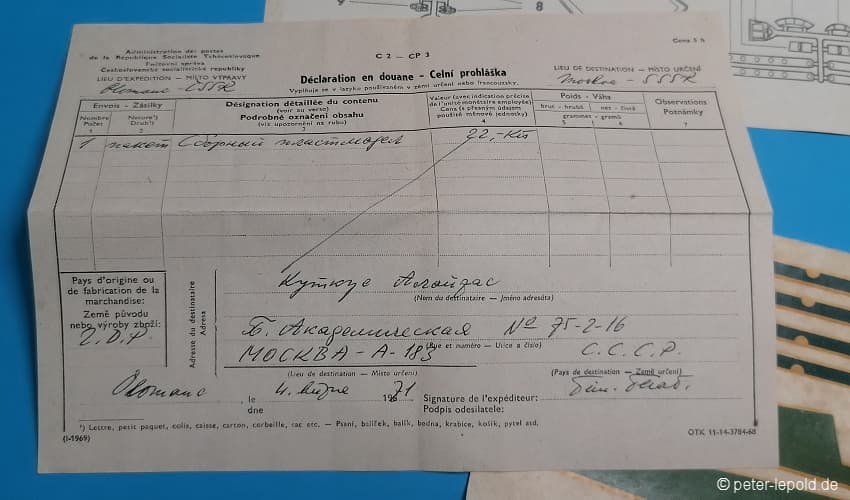 9
8
Administration des postes
de la République Socialiste Tchécoslovaque
Poštovní správa
Československé socialistické republiky
LIEU D'EXPÉDITION — MÍSTO VÝPRAVY
ČSSR
C 2 — CP 3
Déclaration en douane – Celní prohláška
Vyplňuje se v jazyku používaném v zemi určení nebo francouzsky.
Cena 5 h
LIEU DE DESTINATION — MÍSTO URČENÍ
Moskva - SSSR
Envois - Zásilky
Nombre Počet
1
Nature¹) Druh¹)
2
Désignation détaillée du contenu
(voir au verso)
Podrobné označení obsahu
(viz upozornění na rubu)
3
Valeur (avec indication précise
de l'unité monétaire employée)
Cena (s přesným údajem
použité měnové jednotky)
4
Poids - Váha
brut - hrubá
net - čistá
grammes - gramů
5
6
Observations
Poznámky
7
1 пакет Сборный пластмодел 22,- Kčs
Pays d'origine ou
de fabrication de la
marchandise:
Země původu
nebo výroby zboží:
Adresse du destinataire
Adresa
(Nom du destinataire — Jméno adresáta)
Б. Академическая № 75-2-16
(Rue et numéro — Ulice a číslo)
МОСКВА - А - 183 С.С.С.Р.
(Lieu de destination — Místo určení)
(Pays de destination — Země určení)
le
dne
4.
1971
Signature de l'expéditeur:
Podpis odesílatele:
¹) Lettre, petit paquet, colis, caisse, carton, corbeille, sac etc. — Psaní, balíček, balík, bedna, krabice, košík, pytel atd.
(I-1969)
OTK 11-14-3784-68
© peter-lepold.de